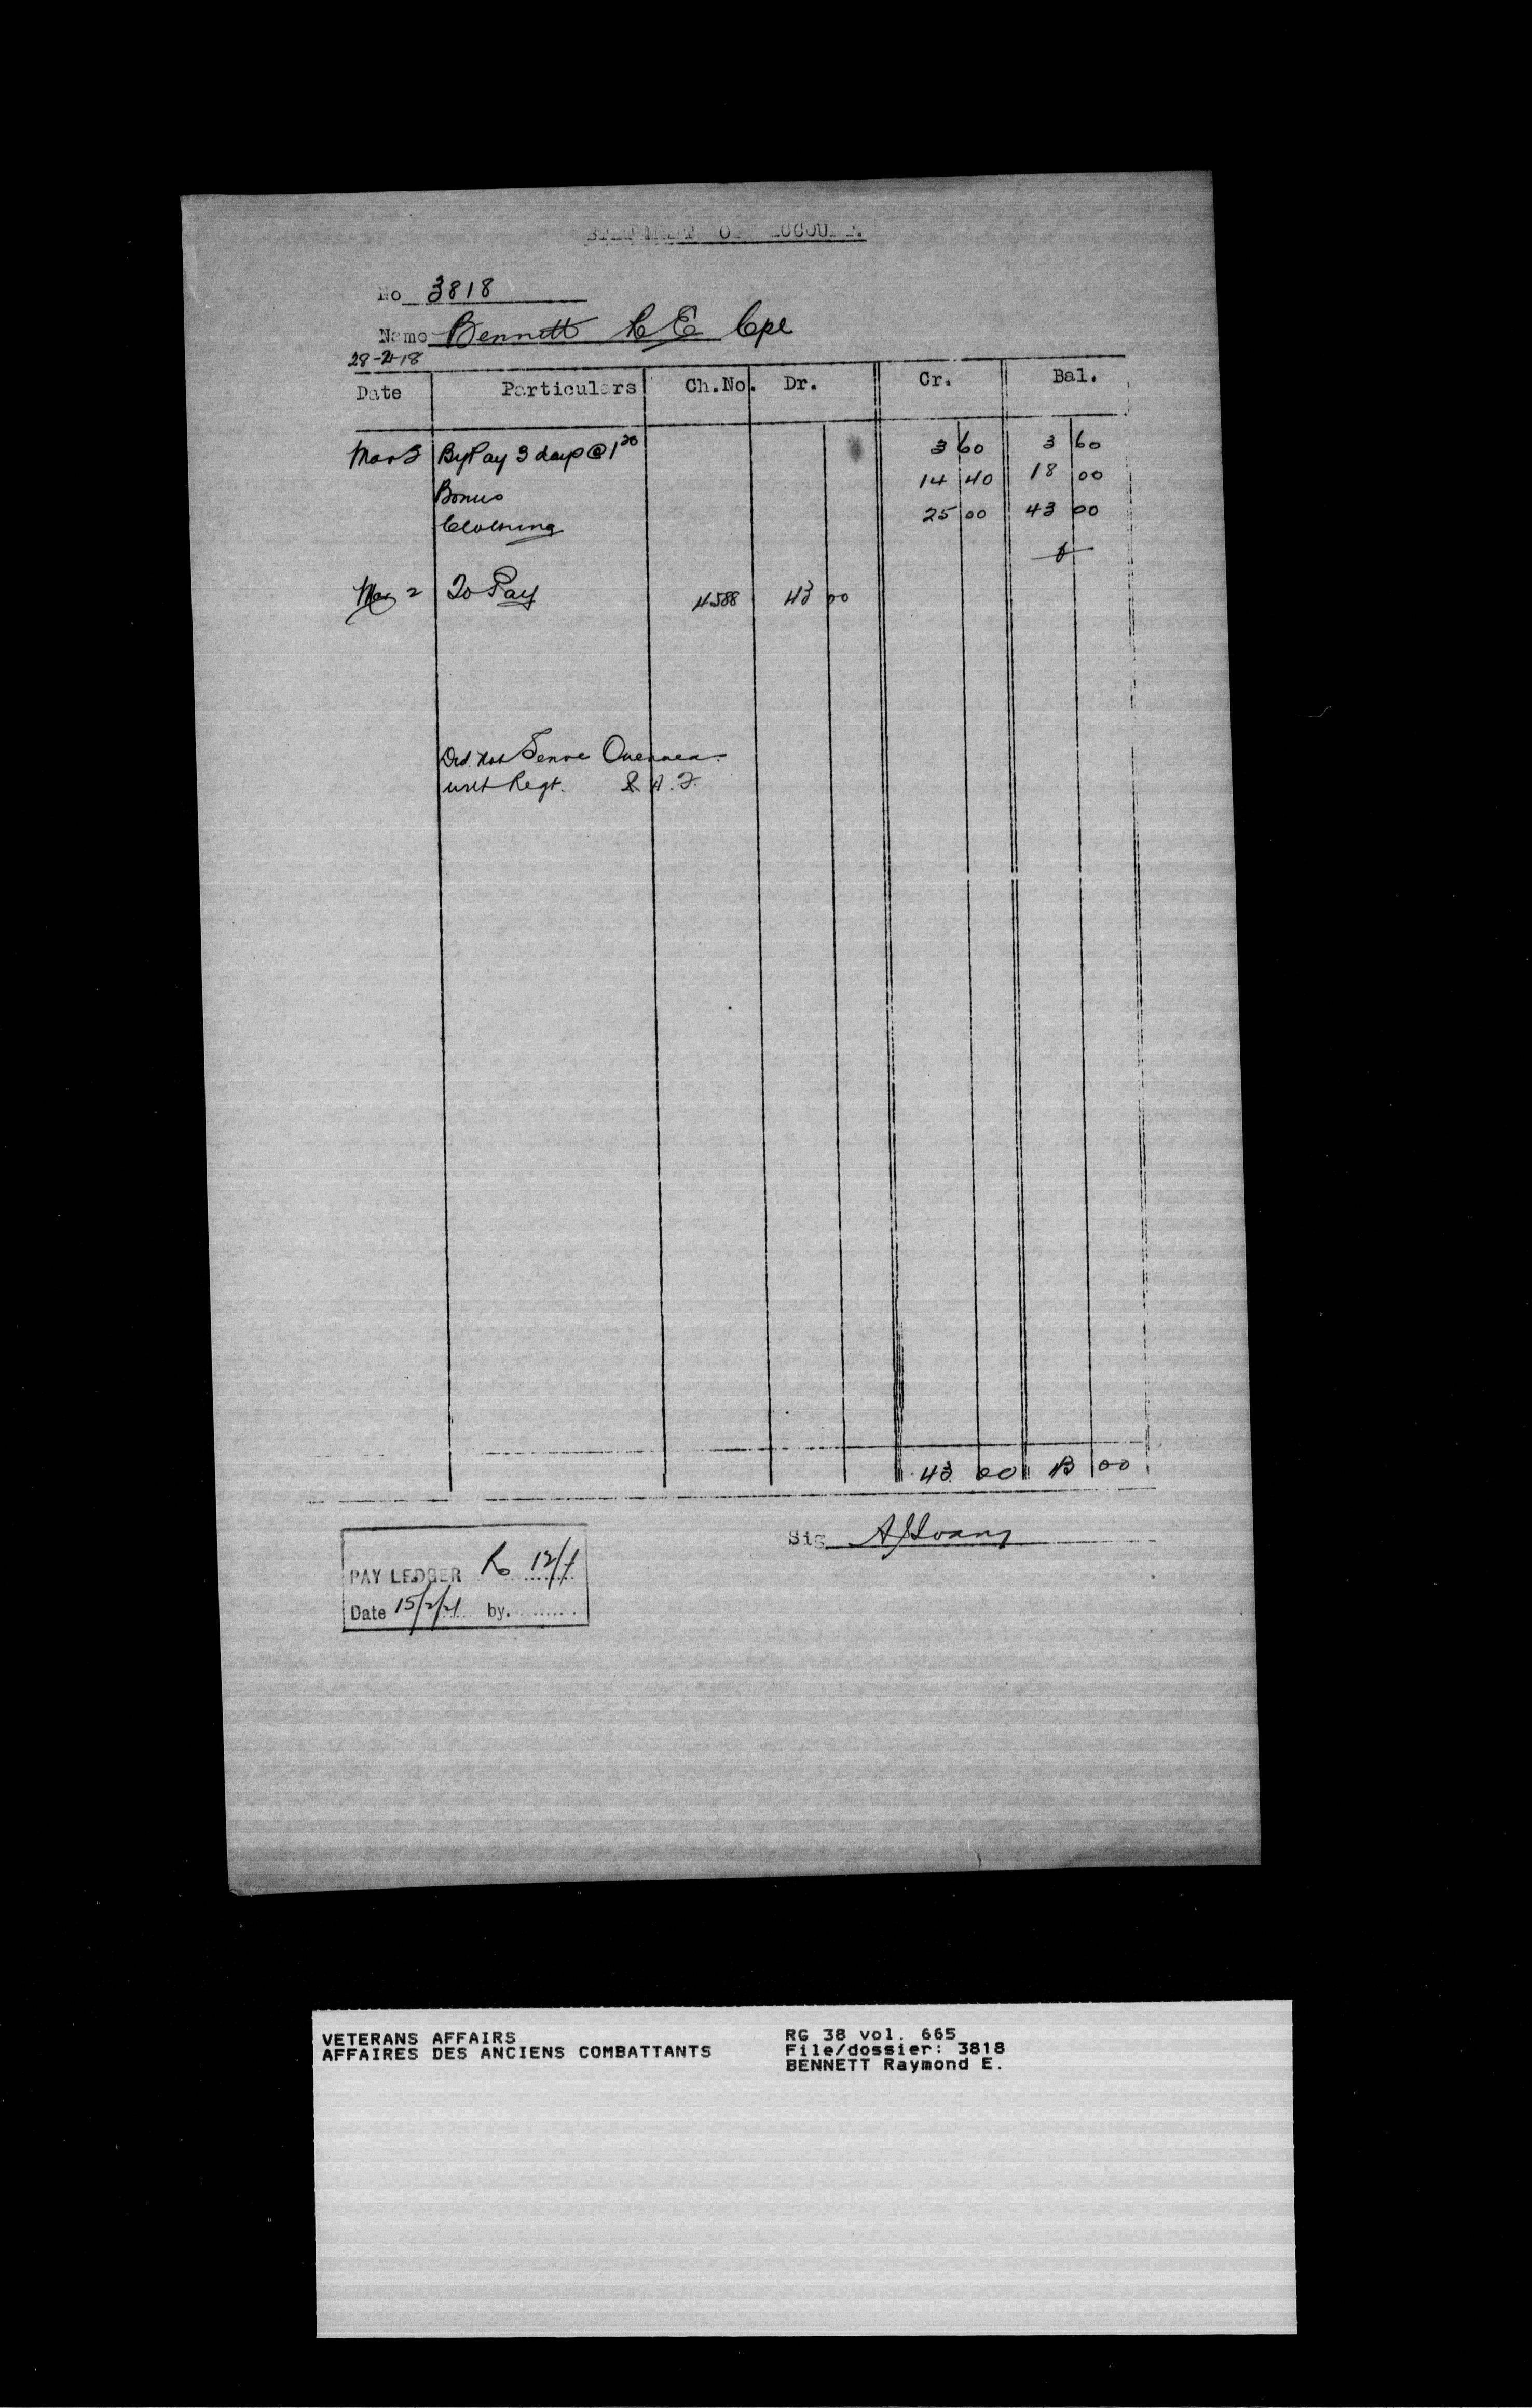 STATEMENT OF ACCOUNT.
No 3818
Name Bennett C E Cpl
28-2-18
Date Particulars Ch.No. Dr. Cr. Bal.
Mar 3 By Pay 3 days @ 1 20 3 60 3 60
Bonus 14 40 18 00
Clothing 25 00 43 00
To Pay 4588 43 00
Did not Serve Overseas
with Regt.
43 00 00
Sig
PAY LEDGER
Date 15/2/21 by.
VETERANS AFFAIRS
AFFAIRES DES ANCIENS COMBATTANTS
RG 38 vol. 665
File/dossier: 3818
BENNETT Raymond E.